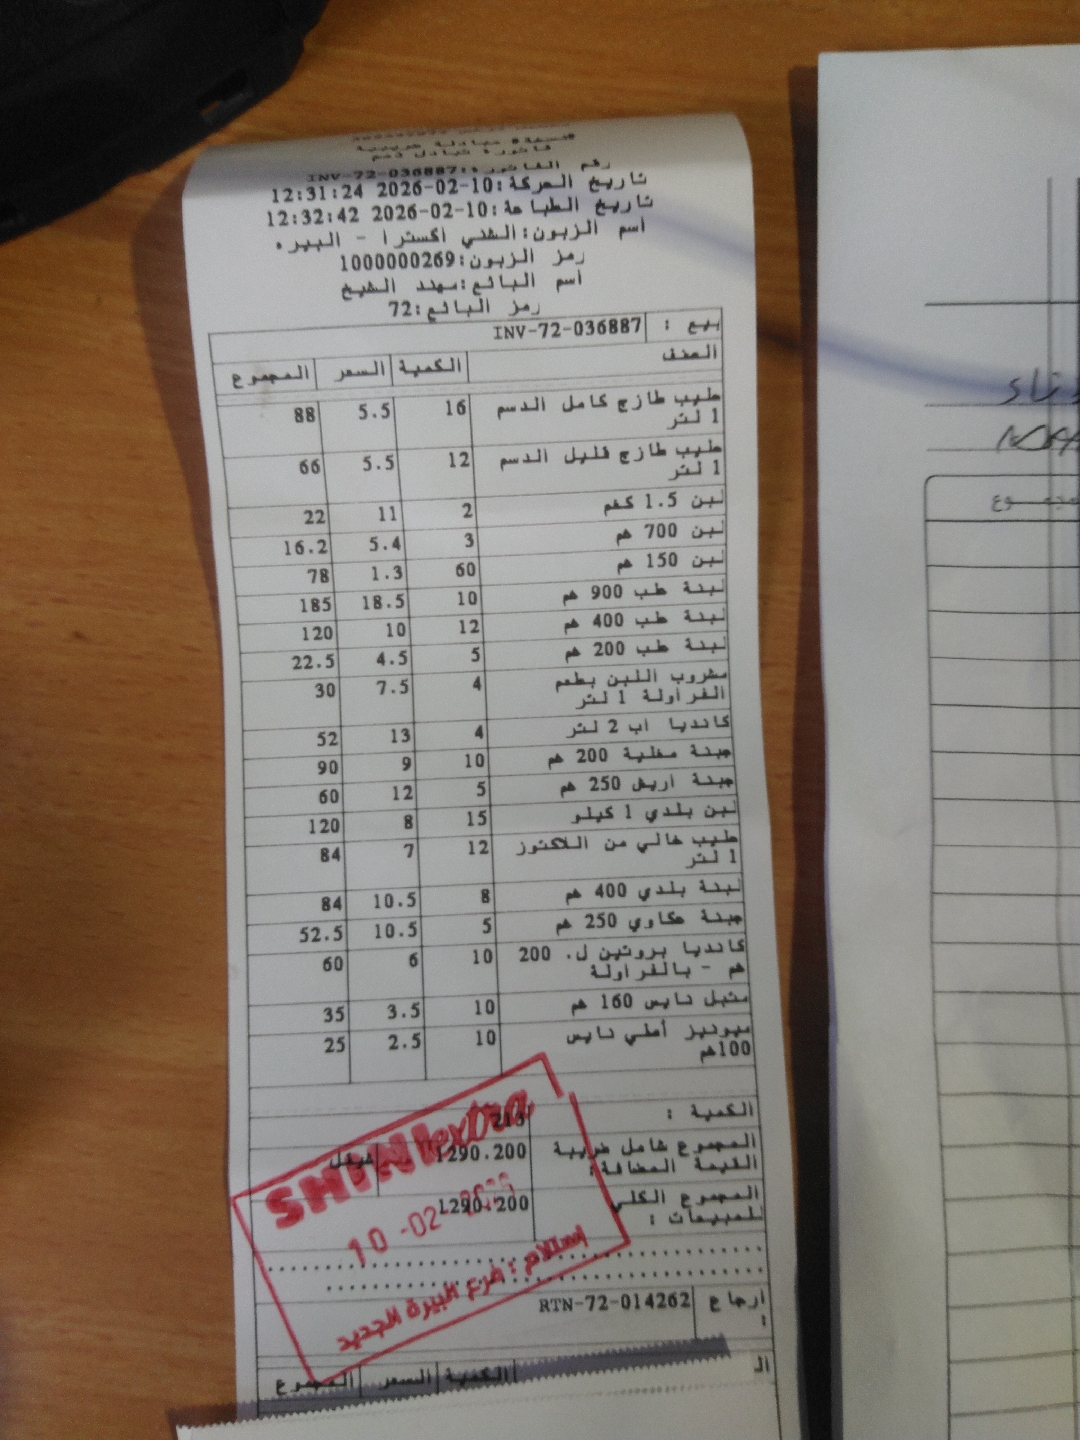 فاتورة تبادل ذمم
رقم الفاتورة:INV-72-036887
تاريخ الحركة:10-02-2026 12:31:24
تاريخ الطباعة:10-02-2026 12:32:42
أسم الزبون:الشني أكسترا - البيره
رمز الزبون:1000000269
أسم البائع:مهند الشيخ
رمز البائع:72
بيع : INV-72-036887
الصنف الكمية السعر المجموع
حليب طازج كامل الدسم 16 5.5 88
1 لتر
حليب طازج قليل الدسم 12 5.5 66
1 لتر
لبن 1.5 كغم 2 11 22
لبن 700 غم 3 5.4 16.2
لبن 150 غم 60 1.3 78
لبنة طب 900 غم 10 18.5 185
لبنة طب 400 غم 12 10 120
لبنة طب 200 غم 5 4.5 22.5
مشروب اللبن بطعم 4 7.5 30
الفراولة 1 لتر
كانديا اب 2 لتر 4 13 52
جبنة مغلية 200 غم 10 9 90
جبنة اريش 250 غم 5 12 60
لبن بلدي 1 كيلو 15 8 120
حليب خالي من اللاكتوز 12 7 84
1 لتر
لبنة بلدي 400 غم 8 10.5 84
جبنة عكاوي 250 غم 5 10.5 52.5
كانديا بروتين ل. 200 10 6 60
غم - بالفراولة
متبل نايس 160 غم 10 3.5 35
ميونيز أصلي نايس 10 2.5 25
100غم
الكمية : 213
المجموع شامل ضريبة 1290.200 شيقل
القيمة المضافة:
المجموع الكلي 1290.200
للمبيعات :
SHINI extra
10 -02- 2026
إستلام : فرع البيرة الجديد
ارجاع RTN-72-014262
:
ال الكمية السعر المجموع